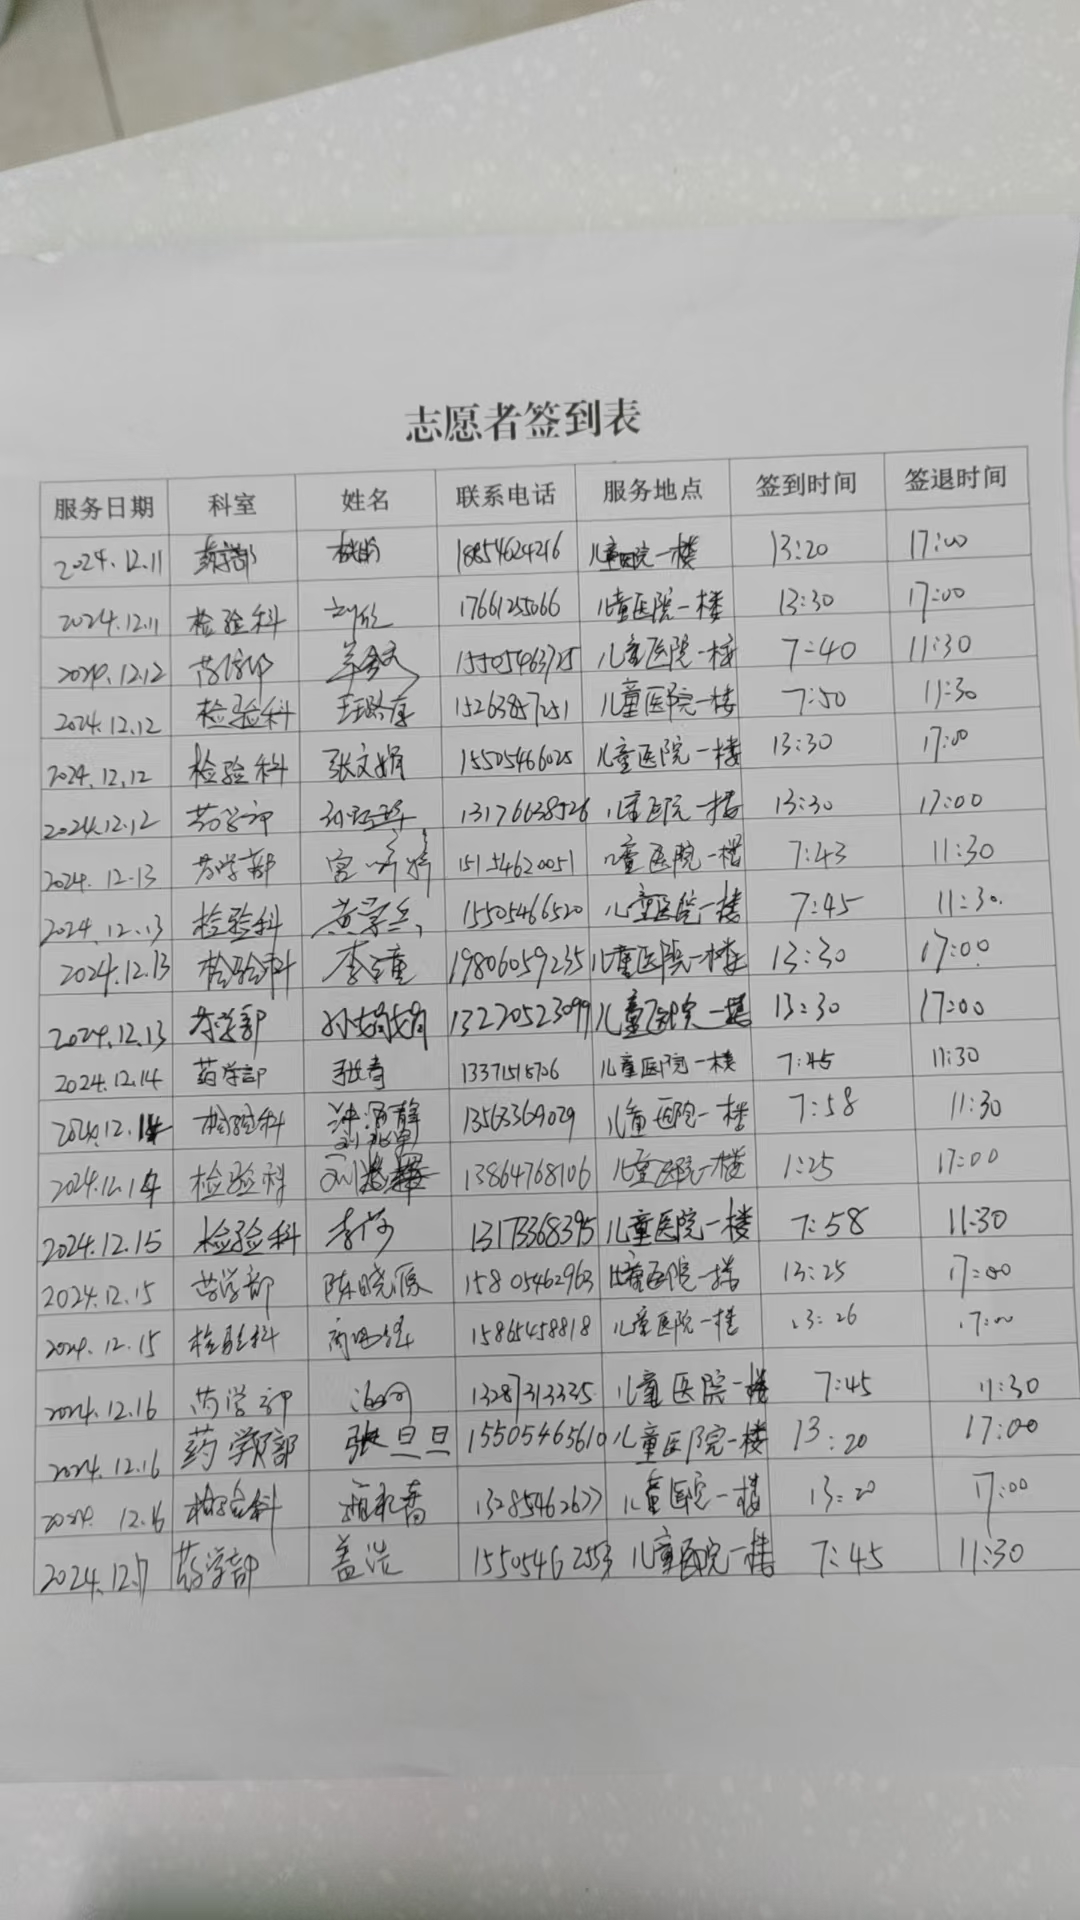 志愿者签到表
服务日期 科室 姓名 联系电话 服务地点 签到时间 签退时间
2024.12.11 药学部 18854624216 儿童医院一楼 13:20 17:00
2024.12.11 检验科 17661255066 儿童医院一楼 13:30 17:00
2024.12.12 药学部 15505463725 儿童医院一楼 7:40 11:30
2024.12.12 检验科 15263857251 儿童医院一楼 7:50 11:30
2024.12.12 检验科 张文娟 15505466025 儿童医院一楼 13:30 17:00
2024.12.12 药学部 13176638526 儿童医院一楼 13:30 17:00
2024.12.13 药学部 宫婷婷 15154620051 儿童医院一楼 7:43 11:30
2024.12.13 检验科 15505466520 儿童医院一楼 7:45 11:30
2024.12.13 检验科 19806059235 儿童医院一楼 13:30 17:00
2024.12.13 药学部 孙娟娟 13270523099 儿童医院一楼 13:30 17:00
2024.12.14 药学部 13371515706 儿童医院一楼 7:45 11:30
2024.12.14 检验科 13563369029 儿童医院一楼 7:58 11:30
2024.12.14 检验科 13864768106 儿童医院一楼 1:25 17:00
2024.12.15 检验科 13173368395 儿童医院一楼 7:58 11:30
2024.12.15 药学部 陈晓源 15805462963 儿童医院一楼 13:25 17:00
2024.12.15 检验科 15865458818 儿童医院一楼 13:26 17:00
2024.12.16 药学部 13287313335 儿童医院一楼 7:45 11:30
2024.12.16 药学部 张旦旦 15505465610 儿童医院一楼 13:20 17:00
2024.12.16 检验科 13285462677 儿童医院一楼 13:20 17:00
2024.12.17 药学部 盖浩 15505462553 儿童医院一楼 7:45 11:30